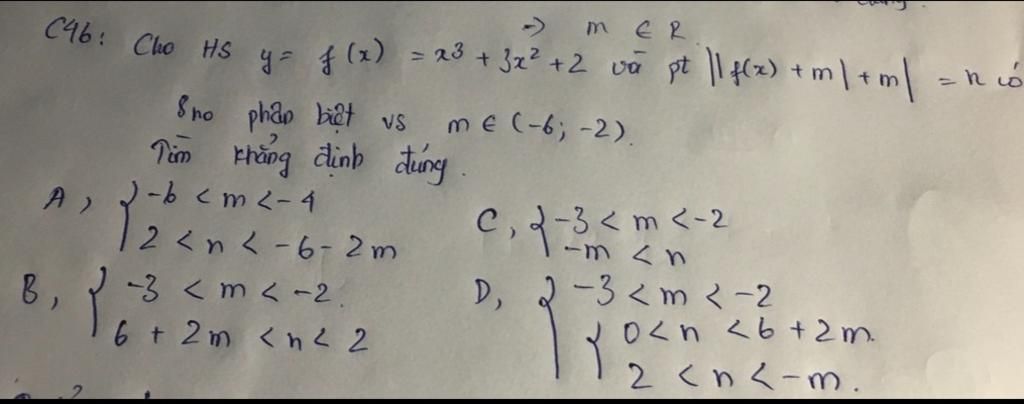 => m ∈ R
C46: Cho HS y = f(x) = x³ + 3x² + 2 và pt ||f(x) + m| + m| = n có
8no phân biệt vs m ∈ (-6; -2).
Tìm khẳng định đúng.
A, { -6 < m < -4
2 < n < -6 - 2m
B, { -3 < m < -2.
6 + 2m < n < 2
C, { -3 < m < -2
-m < n
D, { -3 < m < -2
{ 0 < n < 6 + 2m.
2 < n < -m.